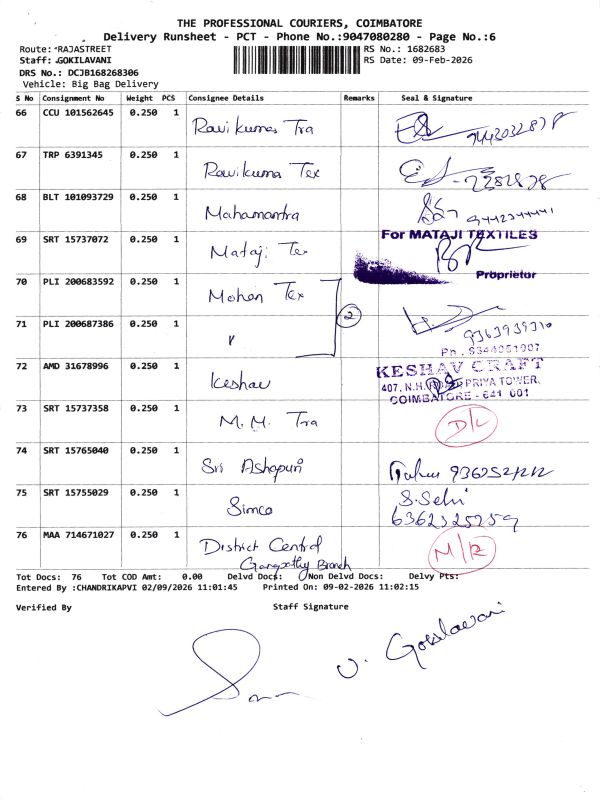 THE PROFESSIONAL COURIERS, COIMBATORE
Delivery Runsheet - PCT - Phone No.:9047080280 - Page No.:6
Route: RAJASTREET
RS No.: 1682683
Staff: GOKILAVANI
RS Date: 09-Feb-2026
DRS No.: DCJB168268306
Vehicle: Big Bag Delivery
S No Consignment No Weight PCS Consignee Details Remarks Seal & Signature
66 CCU 101562645 0.250 1 Ravikumar Tra
67 TRP 6391345 0.250 1 Ravikumar Tex
68 BLT 101093729 0.250 1 Mahamantra
69 SRT 15737072 0.250 1 Mataji Tex For MATAJI TEXTILES
Proprietor
70 PLI 200683592 0.250 1 Mohan Tex
2
71 PLI 200687386 0.250 1 " 9363939310
Ph. 9344051907
72 AMD 31678996 0.250 1 Keshav KESHAV CRAFT
407, N.H. PRIYA TOWER,
COIMBATORE - 641 001
73 SRT 15737358 0.250 1 M. M. Tra D/L
74 SRT 15765040 0.250 1 Sri Ashapuri
75 SRT 15755029 0.250 1 Simco S. Selvi
6362325259
76 MAA 714671027 0.250 1 District Central M/R
Ganapathy Branch
Tot Docs: 76 Tot COD Amt: 0.00 Delvd Docs: Non Delvd Docs: Delvy Pts:
Entered By :CHANDRIKAPVI 02/09/2026 11:01:45 Printed On: 09-02-2026 11:02:15
Verified By Staff Signature
V. Gokilavani